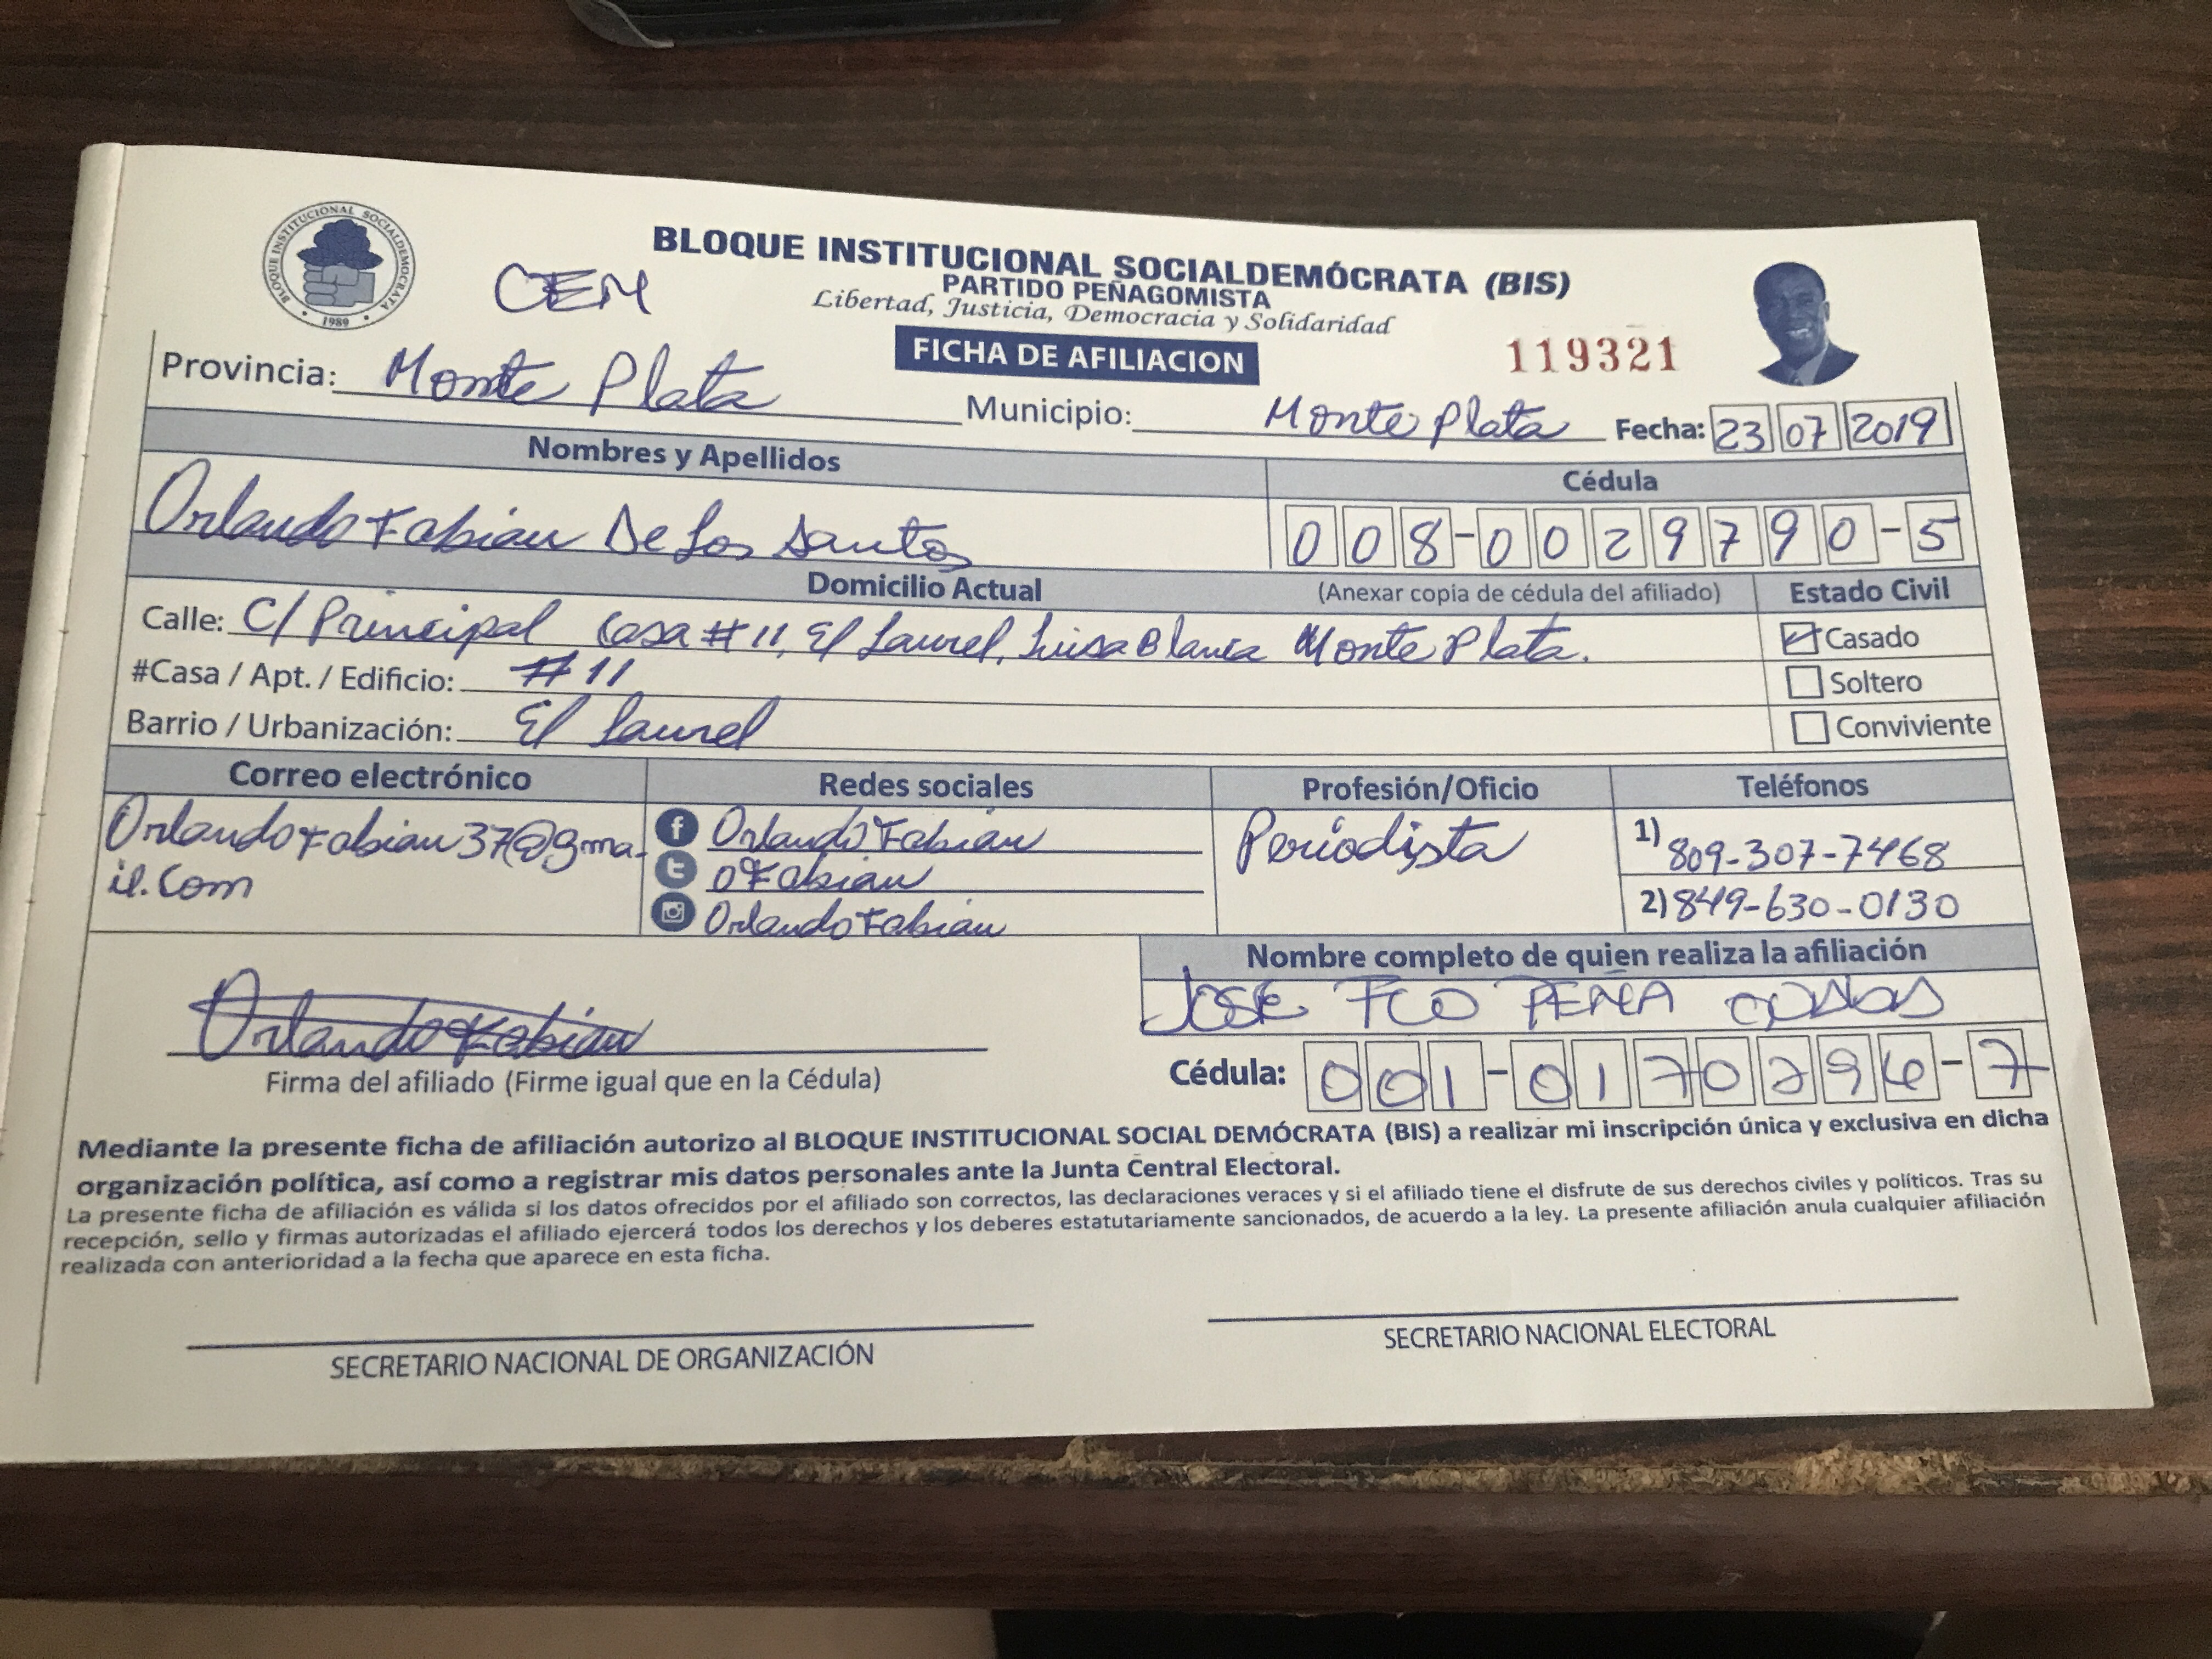 BLOQUE INSTITUCIONAL SOCIALDEMOCRATA
1989
CEN
BLOQUE INSTITUCIONAL SOCIALDEMÓCRATA (BIS)
PARTIDO PEÑAGOMISTA
Libertad, Justicia, Democracia y Solidaridad
FICHA DE AFILIACION
119321
Provincia: Monte Plata Municipio: Monte Plata Fecha: 23 07 2019
Nombres y Apellidos Cédula
Orlando Fabian De Los Santos 008-0029790-5
Domicilio Actual (Anexar copia de cédula del afiliado) Estado Civil
Calle: C/ Principal Casa # 11, El Laurel, Luisa Blanca Monte Plata. Casado
#Casa / Apt. / Edificio: # 11 Soltero
Barrio / Urbanización: El Laurel Conviviente
Correo electrónico Redes sociales Profesión/Oficio Teléfonos
OrlandoFabian37@gma- Orlando Fabian Periodista 1) 809-307-7468
il.Com OFabian 2) 849-630-0130
OrlandoFabian
Nombre completo de quien realiza la afiliación
Orlando Fabian JOSE FCO PEÑA
Firma del afiliado (Firme igual que en la Cédula) Cédula: 001-0170296-7
Mediante la presente ficha de afiliación autorizo al BLOQUE INSTITUCIONAL SOCIAL DEMÓCRATA (BIS) a realizar mi inscripción única y exclusiva en dicha
organización política, así como a registrar mis datos personales ante la Junta Central Electoral.
La presente ficha de afiliación es válida si los datos ofrecidos por el afiliado son correctos, las declaraciones veraces y si el afiliado tiene el disfrute de sus derechos civiles y políticos. Tras su
recepción, sello y firmas autorizadas el afiliado ejercerá todos los derechos y los deberes estatutariamente sancionados, de acuerdo a la ley. La presente afiliación anula cualquier afiliación
realizada con anterioridad a la fecha que aparece en esta ficha.
SECRETARIO NACIONAL DE ORGANIZACIÓN SECRETARIO NACIONAL ELECTORAL